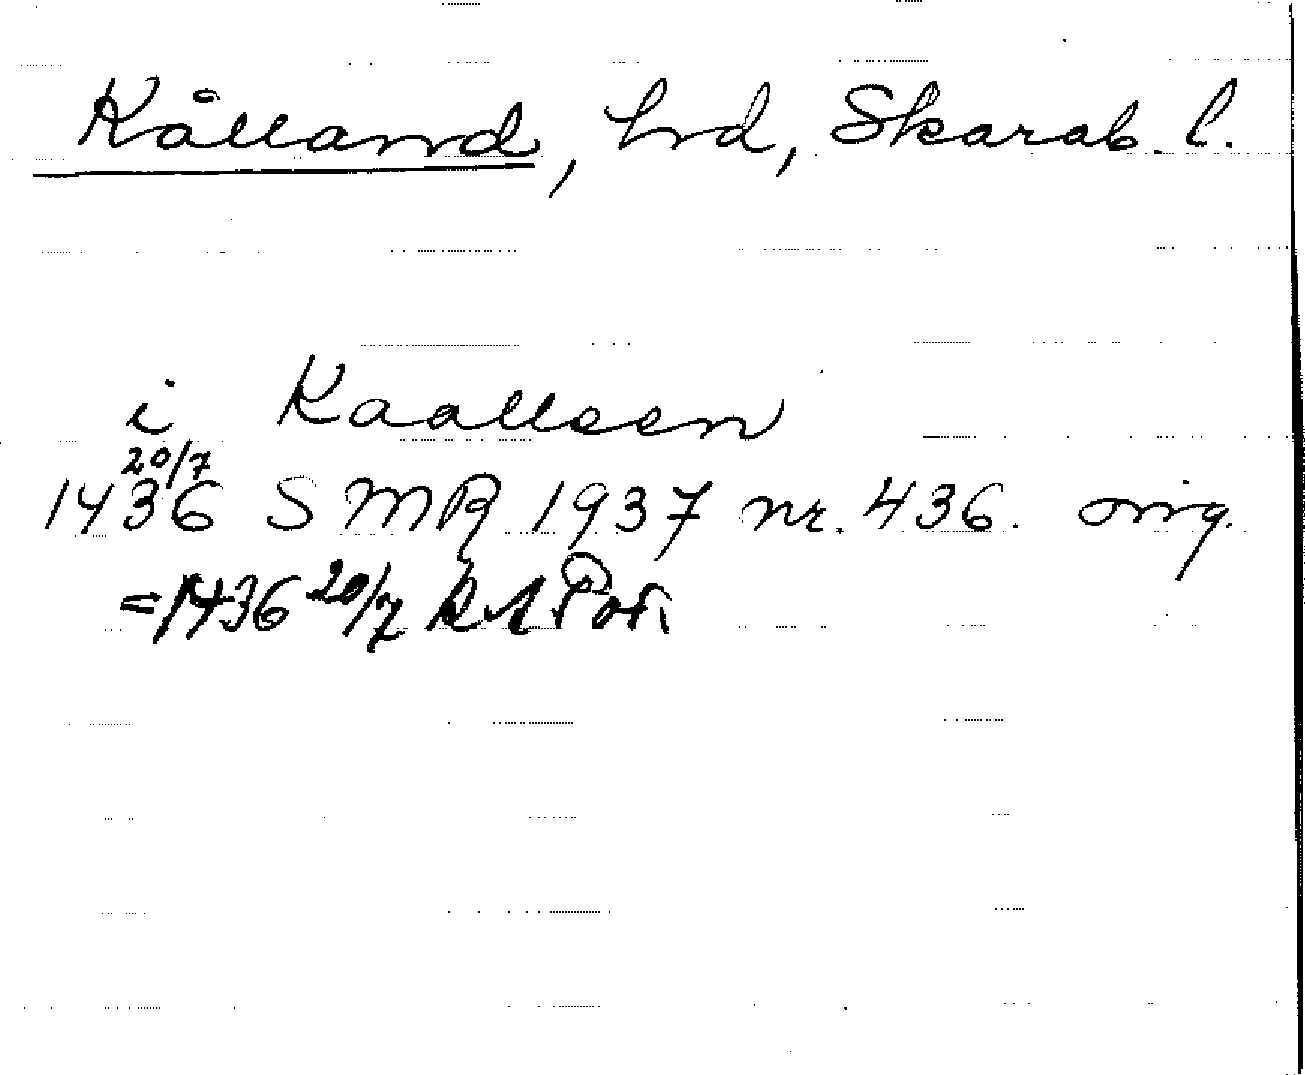 Kålland, hrd, Skarab. l.
i Kaalleen
20/7
1436 SMR 1937 nr. 436. orig.
=1436 20/7 RA